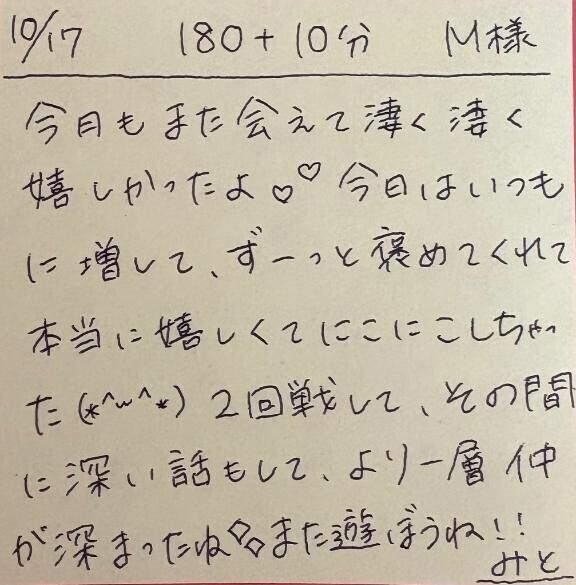 10/17 180+10分 M様
今日もまた会えて凄く凄く
嬉しかったよ♡♡ 今日はいつも
に増して、ずーっと褒めてくれて
本当に嬉しくてにこにこしちゃっ
た(*^ω^*) 2回戦して、その間
に深い話もして、より一層仲
が深まったね◇◇また遊ぼうね!!
みと